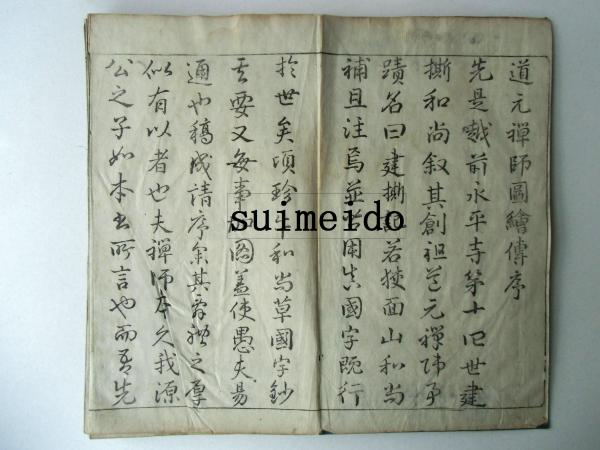 道元禪師圖繪傳序
先是越前永平寺第十四世建
撕和尚叙其創祖道元禪師事
蹟名曰建撕記若狹面山和尚
補且注焉並皆用其國字既行
於世矣頃珍牛和尚草國字鈔
其要又每事加圖蓋使愚夫易
通也稿成請序余其辭禮之厚
似有以者也夫禪師本久我源
公之子如本書所言也而吾先
suimeido